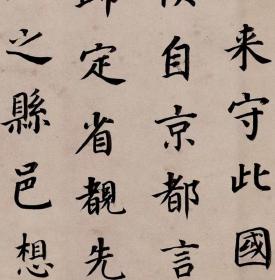 来守此國
自京都言
定省觀先
之縣邑想